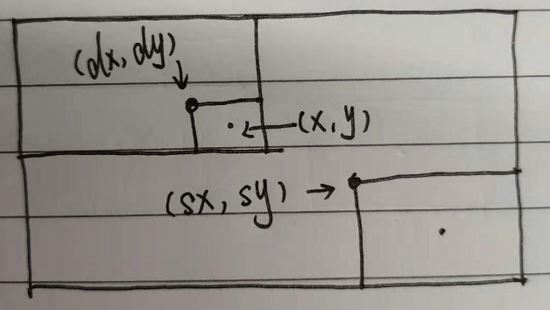 (dx, dy)
(x, y)
(sx, sy)